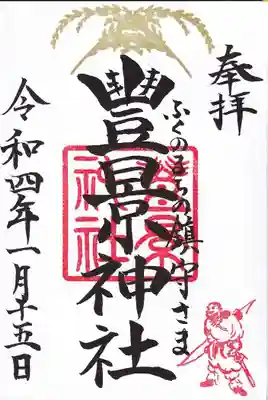 奉拝
ふくのまちの旗守さま
豊景神社
令和四年一月十五日